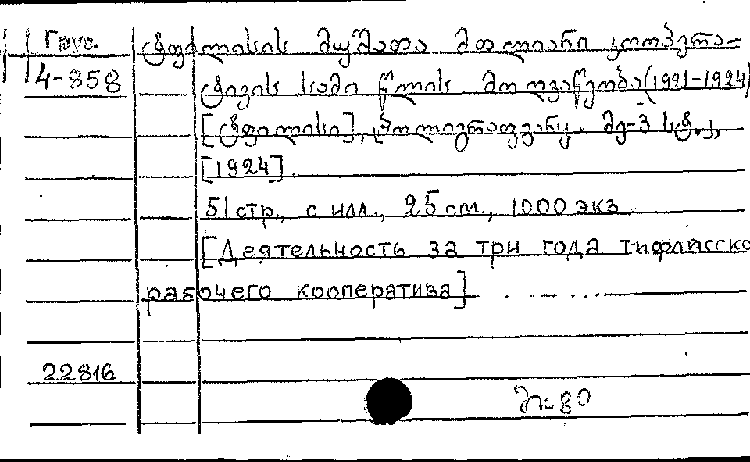 Груз. ტფილისის მუშათა მთლიანი კოოპერა-
4-858 ტივის სამი წლის მოღვაწეობა (1921-1924)
[ტფილისი], პოლიგრაფკავშ. მე-3 სტ.,
[1924].
51 стр., с илл., 25 cm., 1000 экз
[Деятельность за три года тифлисско
рабочего кооператива]
22816
80